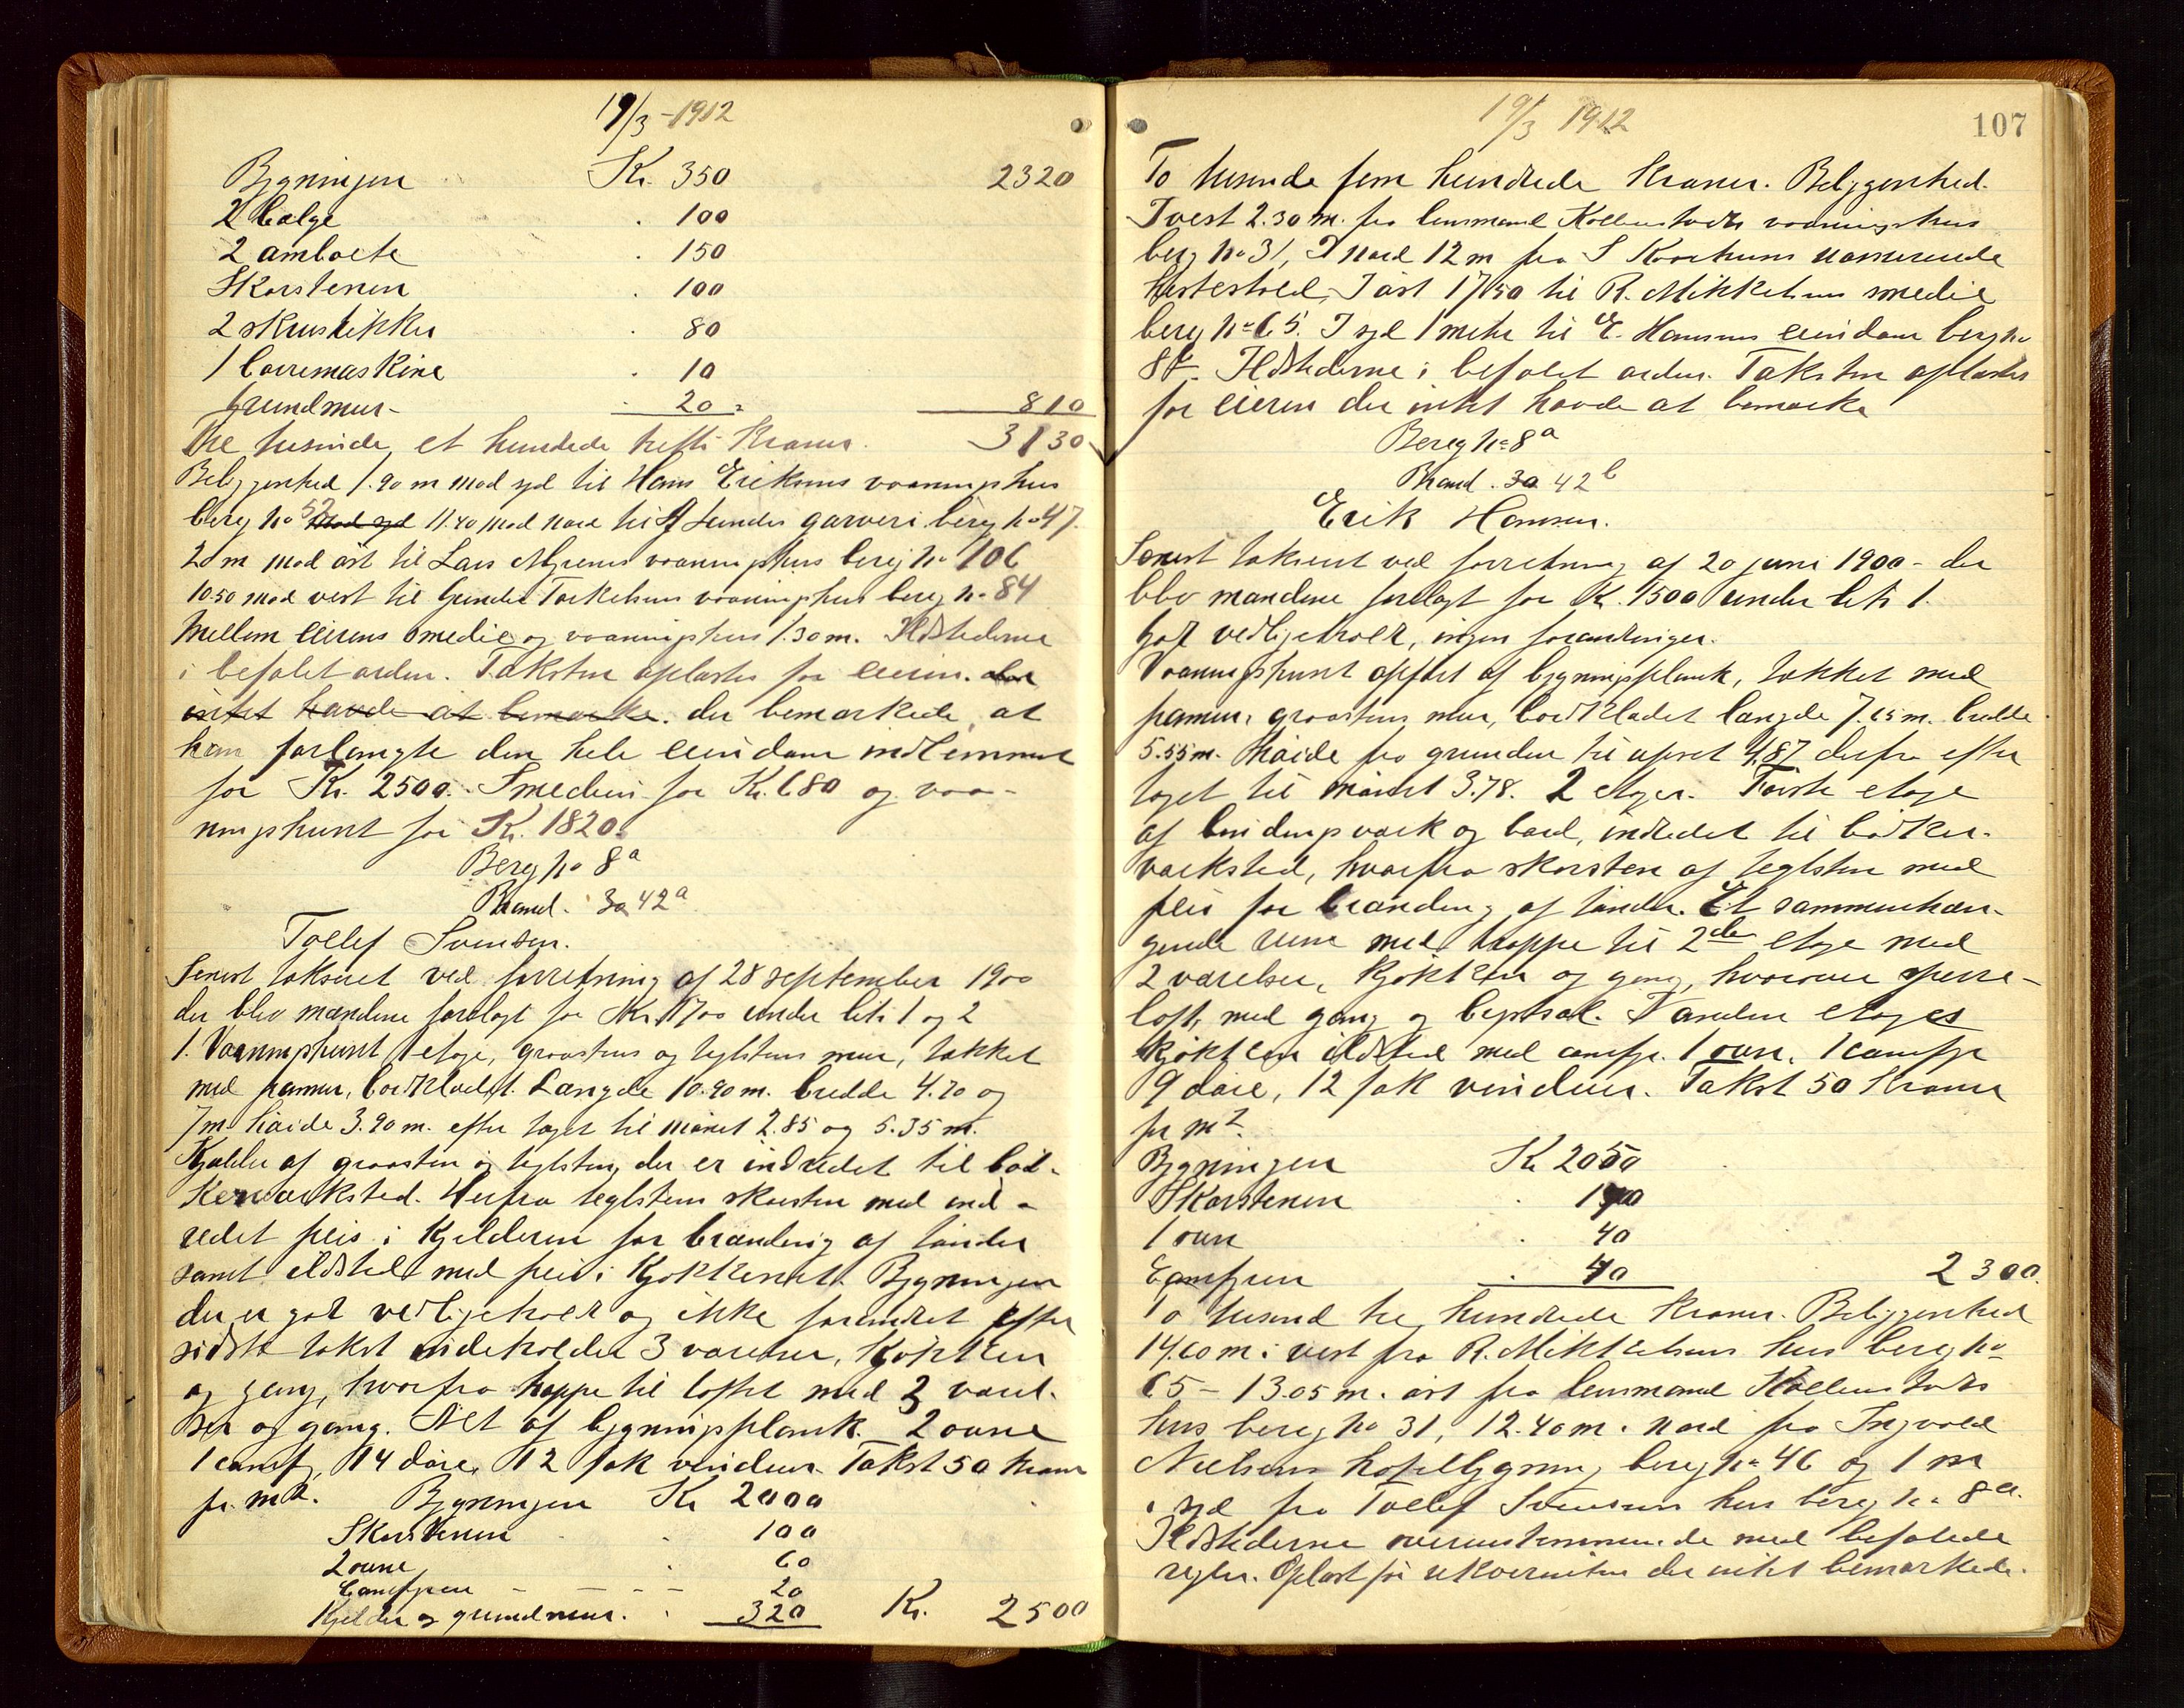 19/3 - 1912
Bygningen Kr. 350 2320
2 bælge . 100
2 ambolte . 150
Skorstenen . 100
2 skrustikker . 80
1 boremaskine . 10
Grundmur - . 20 = 810
Tre tusinde et hundrede tretti Kroner. 3130
Beliggenhed 1.90 m mod syd til Hans Eriksens vaaningshus
bereg no 52 mod syd 11.40 mod nord til Lundes garveri bereg no 47.
20 m mod øst til Lars Myrenes vaaningshus bereg no 106
10.50 mod vest til Gunder Torkelsens vaaningshus bereg no 84
Mellem eierens smedie og vaaningshus 1.30 m. Ildstederne
i befalet orden. Taksten oplæstes for eieren. der
intet havde at bemærke. der bemærkede, at
han forlangte den hele eiendom indlemmet
for Kr. 2500. Smedien for Kr. 680 og vaa-
ningshuset for Kr. 1820.
Bereg no 8a
Brand. 30 42a
Tollef Svendsen.
Senest takseret ved forretning af 28 september 1900
der blev mændene forelagt for Kr. 1700 under litr 1 og 2
1. Vaaningshuset 1 etage, graastens og teglstens mur, tækket
med panner, bordklædt. Længde 10.90 m. bredde 4.70 og
7 m høide 3.90 m. efter taget til mønet 2.85 og 5.35 m.
Kjælder af graasten og teglsten, der er indredet til bød-
kerverksted. Herfra teglstens skorsten med ind-
redet peis i kjelderen for brænding af tønder
samt ildsted med peis i kjøkkenet. Bygningen
der er god vedligeholdt og ikke forandret efter
sidste takst indeholder 3 værelser, kjøkken
og gang, hvorfra trappe til loftet med 3 værel-
ser og gang. Alt af bygningsplank. 2 ovne
1 camf, 14 døre, 12 fak vinduer. Takst 50 kroner
pr. m2. Bygningen Kr 2000
Skorstenen . 100
2 ovne . 60
Camfyren - - - - 20
Kjelder og grundmur. . 320 Kr. 2500
19/3 1912
107
To tusinde fem hundrede Kroner. Beliggenhed.
I vest 2.30 m. fra lensmand Kollenstvedts vaaningshus
bereg no 31, I nord 12 m fra S Kvorhuns værende
hestestald, I øst 17.50 til R. Mikkelsens smedie
bereg no 65. I syd 1 meter til E. Hansens eiendom bereg no
8b. Ildstederne i befalet orden. Taksten oplæstes
for eieren der intet havde at bemærke
Bereg no 8a
Brand. 30 42b
Erik Hansen.
Senest takseret ved forretning af 20 juni 1900 - der
blev mændene forelagt for Kr. 1500 under litr 1.
God vedligeholdt, ingen forandringer.
Vaaningshuset opført af bygningsplank, tækket med
panner, graastens mur, bordklædet længde 7.65 m. bredde
5.55 m. Høide fra grunden til opset 4.87 derfra efter
taget til mønet 3.78. 2 etager. Første etage
af bindingsverk og bord, indredet til bødker-
verksted, hvorfra skorsten af teglsten med
peis for brænding af tønder. Et sammenhæn-
gende rum med trappe til 2den etage med
2 værelser, kjøkken og gang, hvorover sperre-
loft, med gang og loftsal. I anden etages
kjøkken ildsted med camfyr. 1 ovn. 1 camfyr
9 døre, 12 fak vinduer. Takst 50 kroner
pr m2.
Bygningen Kr 2050
Skorstenen . 170
1 ovn . 40
Camfyren . 40 2300.
To tusind tre hundrede kroner. Beliggenhed
14.60 m i vest fra R. Mikkelsens hus bereg no
65 - 13.05 m. øst fra lensmand Kollenstvedts
hus bereg no 31, 12.40 m. nord fra Ingvald
Nielsens hotelbygning bereg no 46 og 1 m
i syd fra Tollef Svendsens hus bereg no 8a.
Ildstederne overensstemmende med befalede
regler. Oplæst for rekvirenten der intet bemærkede.